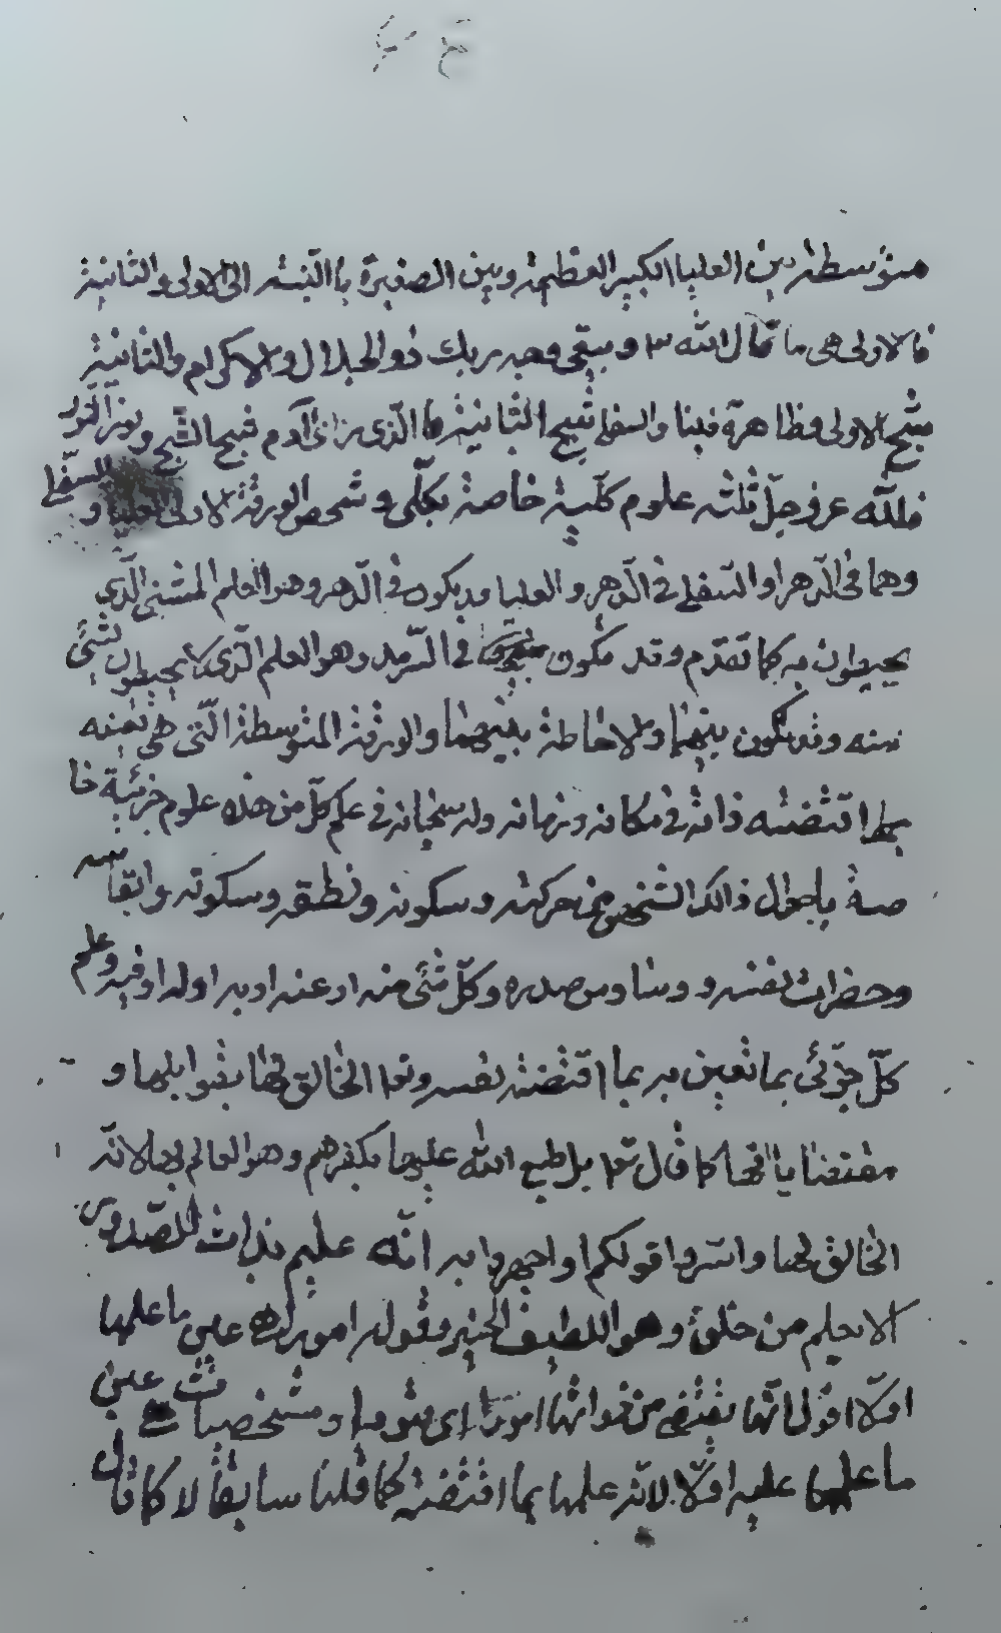 متوسطة بين العليا الكبير العظيمة وبين الصغيرة بالنسبة الى الاولى والثانية
فالاولى هى ما قال الله ٣ ويبقى وجه ربك ذو الجلال والاكرام والثانية
شبح الاولى وظاهرة فينا والسفلى شبح الثانية الذى آدم شبح الشبح و
فلله عز وجل ثلثة علوم كلية خاصة بكلى وشخص الورقة الاولى العليا والسفلى
وهما فى الدهر او السفلى فى الدهر والعليا قد يكون فى الدهر وهو العلم المستثنى الذى
يحيطون به كما تقدم وقد يكون فى السرمد وهو العلم الذى لا يحيطون بشئ
منه وقد يكون بينهما والاحاطة بينهما والورقة المتوسطة التى هى
بما اقتضته ذاته فى مكانه وزمانه وله سبحانه فى علم كل من هذه علوم جزئية خا
صة باحوال ذالك الشخص من حركته وسكونه ونطقه وسكوته وابقائه
وحضرات نفسه ووساوس صدره وكل شئ منه او عنه او به او له او فيه وعلم
كل جزئى بما تعين به بما اقتضته نفسه وتعا الخالق لها بقوابلها و
مقتضياتها كما قال تعا بل طبع الله عليها بكفرهم وهو العالم بها لانه
الخالق لها واسروا قولكم او اجهروا به انه عليم بذات الصدور
الا يعلم من خلق وهو اللطيف الخبير وقوله امور على ما علمها
اولا اقول انها يقتضى من ذواتها امورا اى ومشخصات على
ما علمها عليه اولا لانه علمها بما اقتضته كما قلنا سابقا لا كما قال